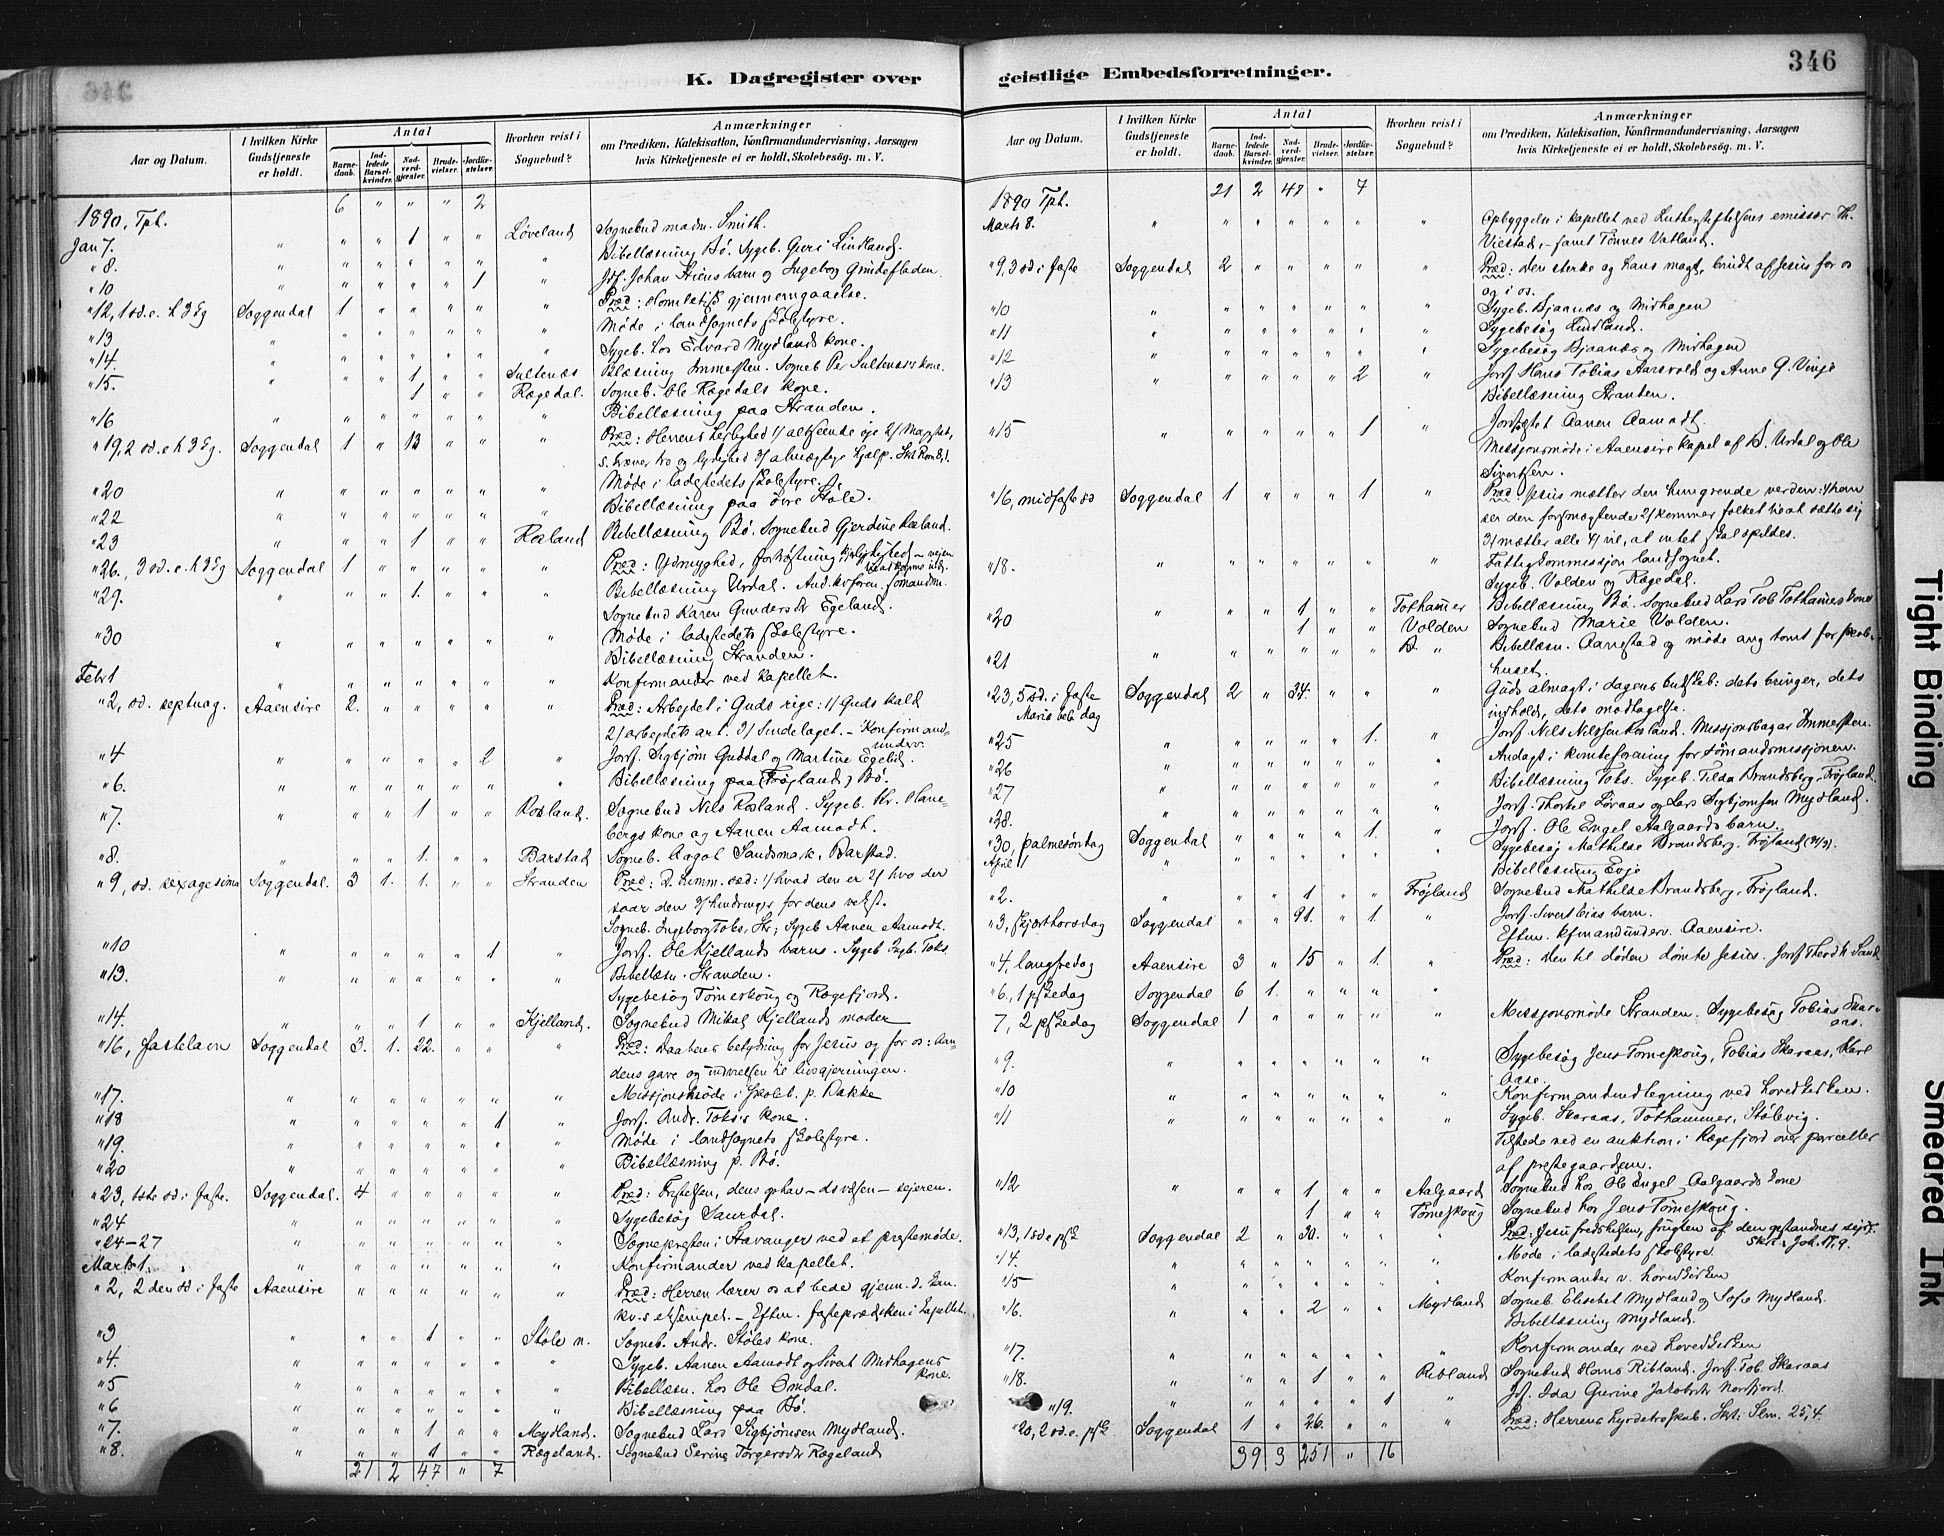 346
K. Dagregister over
Aar og Datum.
I hvilken Kirke Gudstjeneste er holdt.
Antal
Barnedaab.
Indledede Barselkvinder.
Nadverdgjæster.
Brudevielser.
Jordfæstelser.
Hvorhen reist i Sognebud?
Anmærkninger
om Prædiken, Katekisation, Konfirmandundervisning, Aarsagen
hvis Kirketjeneste ei er holdt, Skolebesøg. m. V.
1890, Tph. 6 " " " 2
Jan 7. " " " 1 " " Løveland Sognebud madm. Smith.
" 8. " " " " " " " Bibellæsning Bø. Sygeb. Guri Lindland.
" 10 " " " " " 1 " Jdf. Johan Stiens barn og Ingeborg Grudefladen.
" 12, 1 sd. e. h 3 kg Soggendal 1 " " " " " Præd: Homiletisk gjennemgaaelse.
" 13 " " " " " " " Møde i landsognets skolestyre.
" 14. " " " " " " " Sygeb. hos Edvard Mydlands kone.
" 15. " " " 1 " " Sultenæs Blæsning Immersten. Sogneb Per Sultenæs's kone.
1 " " Rægedal. Sogneb. Ole Rægedals kone.
" 16 " " " " " " " Bibellæsning paa Stranden.
" 19, 2 sd. e h 3 kg. Soggendal 1 " 13 " " " Præd: Herrens herlighed 1/ altseende øje 2/ Magtord,
s. kræver tro og lydighed 3/ almægtige hjælp.
" 20 " " " " " " " Møde i ladestedets skolestyre.
" 22 " " " " " " " Bibellæsning paa øvre Støle.
" 23 " " " 1 " " Rosland Bibellæsning Bø. Sognebud Gjerdine Rosland.
" 26., 3 sd. e. h 3 kg Soggendal 1 " " " " " Præd: Ydmyghed,
" 29. " " " 1. " " " Bibellæsning Urdal.
Sognebud Karen Gundersdr Egeland.
" 30 " " " " " " " Møde i ladestedets skolestyre.
Bibellæsning Stranden.
Febr 1 " " " " " " " Konfirmander ved kapellet.
" 2, sd. septuag. Aaensire 2. " " " " " Præd: Arbejdet i Guds rige: 1/ Guds kald
2/ arbejdets art. 3/ Sindelaget. – Konfirmand-
underv.
" 4 " " " " " 2 " Jorf. Sigbjørn Guddal og Martine Egelid.
" 6. " " " " " " " Bibellæsning paa (Frøyland) Bø.
" 7. " " " 1 " " Rosland. Sognebud Nils Rosland. Sygeb. Chr. Hane-
bergs kone og Aanen Aamodt.
" 8. " " " 1. " " Barstad Sogneb. Aagot Sandsmark, Barstad.
" 9, sd. sexagesima Soggendal. 3 1. 1. " " Stranden Præd: D. himm. sæd: 1/ hvad den er 2/ hvo der
saar den 3/ hindringer for dens vekst.
Sogneb. Ingeborg Toks, Str; Sygeb Aanen Aamodt.
" 10 " " " " " 1 " Jorf. Ole Kjellands barn. Sygeb Ingb. Toks.
" 13. " " " " " " " Bibellæsn. Stranden.
Sygebesøg Tørneskoug og Rægefjord.
" 14. " " " 1 " " Kjelland. Sognebud Mikal Kjellands moder
" 16, fastelavn Soggendal 3. 1. 22. " " " Præd: Daabens betydning for Jesus og for os: Aan-
dens gave og indvielsen til livsgjerningen.
" 17. " " " " " " " Missjonsmøde i skoleb. p. Rakke
" 18 " " " " " 1 " Jorf. Andr. Toks's kone.
" 19. " " " " " " " Møde i landsognets skolestyre.
" 20 " " " " " " " Bibellæsning p. Bø.
" 23, 1ste sd i faste. Soggendal. 4 " " " " " Præd: Fristelsen, dens ophav – ds væsen – sejeren.
" 24 " " " " " " " Sygebesøg Saurdal.
" 24–27 " " " " " " " Sognepresten i Stavanger ved et prestemøde.
Marts 1. " " " " " " " Konfirmander ved kapellet.
" 2, 2 den sd i faste Aaensire " " " " " " Præd: Herren lærer os at bede gjenn. d. kan.
kv.s eksempel. – Eftm. fasteprædiken i kapellet.
" 3 " " " 1 " " Støle n. Sogneb. Andr. Støles kone.
" 4. " " " " " " " Sygeb. Aanen Aamodt og Sivert Midhagens
kone.
" 5 " " " " " " " Bibellæsn. hos Ole Omdal.
" 6 " " " " " " " Bibellæsning paa Bø.
" 7. " " " 1 " " Mydland. Sognebud Lars Sigbjørnsen Mydland.
" 8. " " " 1 " " Rægeland. Sognebud Serine Torgersdr Rægeland
21 2 47 " 7
geistlige Embedsforretninger.
346
Aar og Datum.
I hvilken Kirke Gudstjeneste er holdt.
Antal
Barnedaab.
Indledede Barselkvinder.
Nadverdgjæster.
Brudevielser.
Jordfæstelser.
Hvorhen reist i Sognebud?
Anmærkninger
om Prædiken, Katekisation, Konfirmandundervisning, Aarsagen
hvis Kirketjeneste ei er holdt, Skolebesøg. m. V.
1890 Tph. 21 2 47 " 7
Marts 8. " " " " " " " Opbyggelse i kapellet ved Lutherstiftelsens emissær Th.
Viestad, – samt Tønnes Vatland.
" 9, 3 sd i faste Soggendal 2 " " " " " Præd: den sterke og hans magt, brudt af Jesus for os
og i os.
" 10 " " " " " " " Sygeb. Bjaanæs og Midhagen
" 11 " " " " " " " Sygebesøg Lindland.
" 12 " " " " " " " Sygebesøg Bjaanæs og Midhagen
" 13 " " " " " 2 " Jorf Hans Tobias Aarsvold og Anne G. Vinje
Bibellæsning Stranden.
" 15 " " " " " 1 " Jorfæstet Aanen Aamodt.
Missjonsmøde i Aaensire kapel af B. Urdal og Ole
Sivertsen.
" 16, midfaste sd Soggendal 1 " " " 1 " Præd Jesus mætter den hungrende verden: 1/ han
ser den forsmægtende 2/ kommer folket til at sætte sig
3/ mætter alle 4/ vil, at intet skal spildes.
" 18. " " " " " " " Fattigkommissjon landsognet.
Sygeb. Volden og Rægedal.
" 20 " " " 1 " " Tothamer Bibellæsning Bø. Sognebud Lars Tob Tothamers kone
1 " " Volden Sognebud Marie Volden.
" 21 " " " " " " " Bibellæsn. Aanestad og møde ang tomt for skole-
huset.
" 23, 5 sd. i faste Soggendal 2 " 34. " " " Guds almagt i dagens budskab: dets bringer, dets
Mariæ beb dag indhold, dets modtagelse.
" 25 " " " " " 1. " Jorf Nils Nilssen Rosland. Missjonsbazar Immersten.
" 26 " " " " " " " Andagt i kvindeforening for sømandsmissjonen.
" 27 " " " " " " " Bibellæsning Toks. Sygeb. Tilda Brandsberg, Frøyland.
" 28. " " " " " " " Jorf. Thorkel Løvaas og Lars Sigbjørnsen Mydland.
" 30, palmesøndag Soggendal " " " " 1. " Jorf. Ole Engel Aalgaards barn.
April 1 " " " " " " " Sygebesøg Mathilde Brandsberg. Frøiland (31/3).
Bibellæsning Evje
" 2. " " " 1 " " Frøjland Sognebud Mathilde Brandsberg, Frøjland.
" 3, skjærthorsdag Soggendal " " 91. " 1. " Jorf. Sivert Eias barn.
Eftm. kfmandunderv. Aaensire.
" 4, langfredag Aaensire 3 " 15 " 1. " Præd: Den til døden dømte Jesus. Jorf Theod H. Sand
" 6., 1 pskedag Soggendal 6 1. " " " "
7, 2 pskedag Soggendal 1 " " " " " Missjonsmøde Stranden. Sygebesøg Tobias Skar-
aas.
" 9. " " " " " " " Sygebesøg Jens Tørneskoug, Tobias Skaraas, Karl
Aase.
" 10 " " " " " " " Konfirmandudlegning ved hovedkirken.
" 11 " " " " " " " Sygeb. Skaraas, Tothammer, Stølsvig.
Tilstede ved en auktion i Rægefjord over parceller
af prestegaarden.
" 12 " " " 1 " " Aalgaard Sognebud hos Ole Engel Aalgaards kone
1 " " Tørneskoug Sognebud hos Jens Tørneskoug.
" 13, 1 sd e psk Soggendal 2 " 30. " " " Præd: Jesu fredshilsen, frugten af den opstandnes sejer.
Skt: Joh. 17, 9.
" 14. " " " " " " " Møde i ladestedets skolestyre.
" 15 " " " " " " " Konfirmander v. hovedkirken
" 16. " " " 2 " " Mydland Sogneb. Elisebet Mydland og Sofie Mydland.
Bibellæsning Mydland.
" 17. " " " " " " " Konfirmander ved hovedkirken
" 18. " " " 1 " " Ribland Sognebud Hans Ribland. Jorf. Tob. Skaraas
" 19. " " " " " 1 " Jf. Ida Gurine Jakobsdr Norfjord.
" 20, 2 sd. e. psk Soggendal 1 " 26. " " " Præd: Herrens hyrdetroskab. Skt: Slm. 25, 4.
39 3 251 " 16
Tight Binding
Smeared Ink